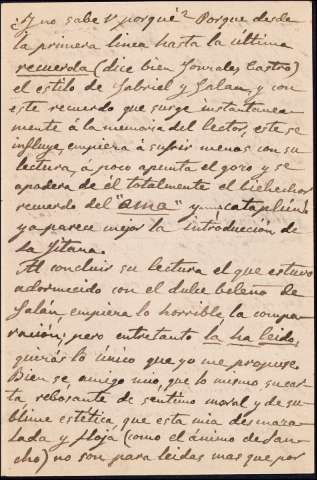 ¿Y no sabe V. porqué? Porque desde
la primera linea hasta la última
recuerda (dice bien Gonzales Castro)
el estilo de Gabriel y Galan, y con
este recuerdo que surge instantanea
mente á la memoria del lector, este se
influye, empieza á sufrir menos con su
lectura, á poco apunta el gozo y se
apodera de él totalmente el hechor
recuerdo del "ama" y ... cataplúm
ya parece mejor la introducción de
la Gitana.
Al concluir su lectura el que estuvo
adormecido con el dulce beleño de
Galán, empieza lo horrible la compa
ración; pero entretanto la ha leido,
quizás lo único que yo me propuse.
Bien se, amigo mio, que lo mismo su car
ta rebosante de sentimo moral y de su
blime estética, que esta mia desmaza
lada y floja (como el ánimo de San
cho) no son para leidas mas que por